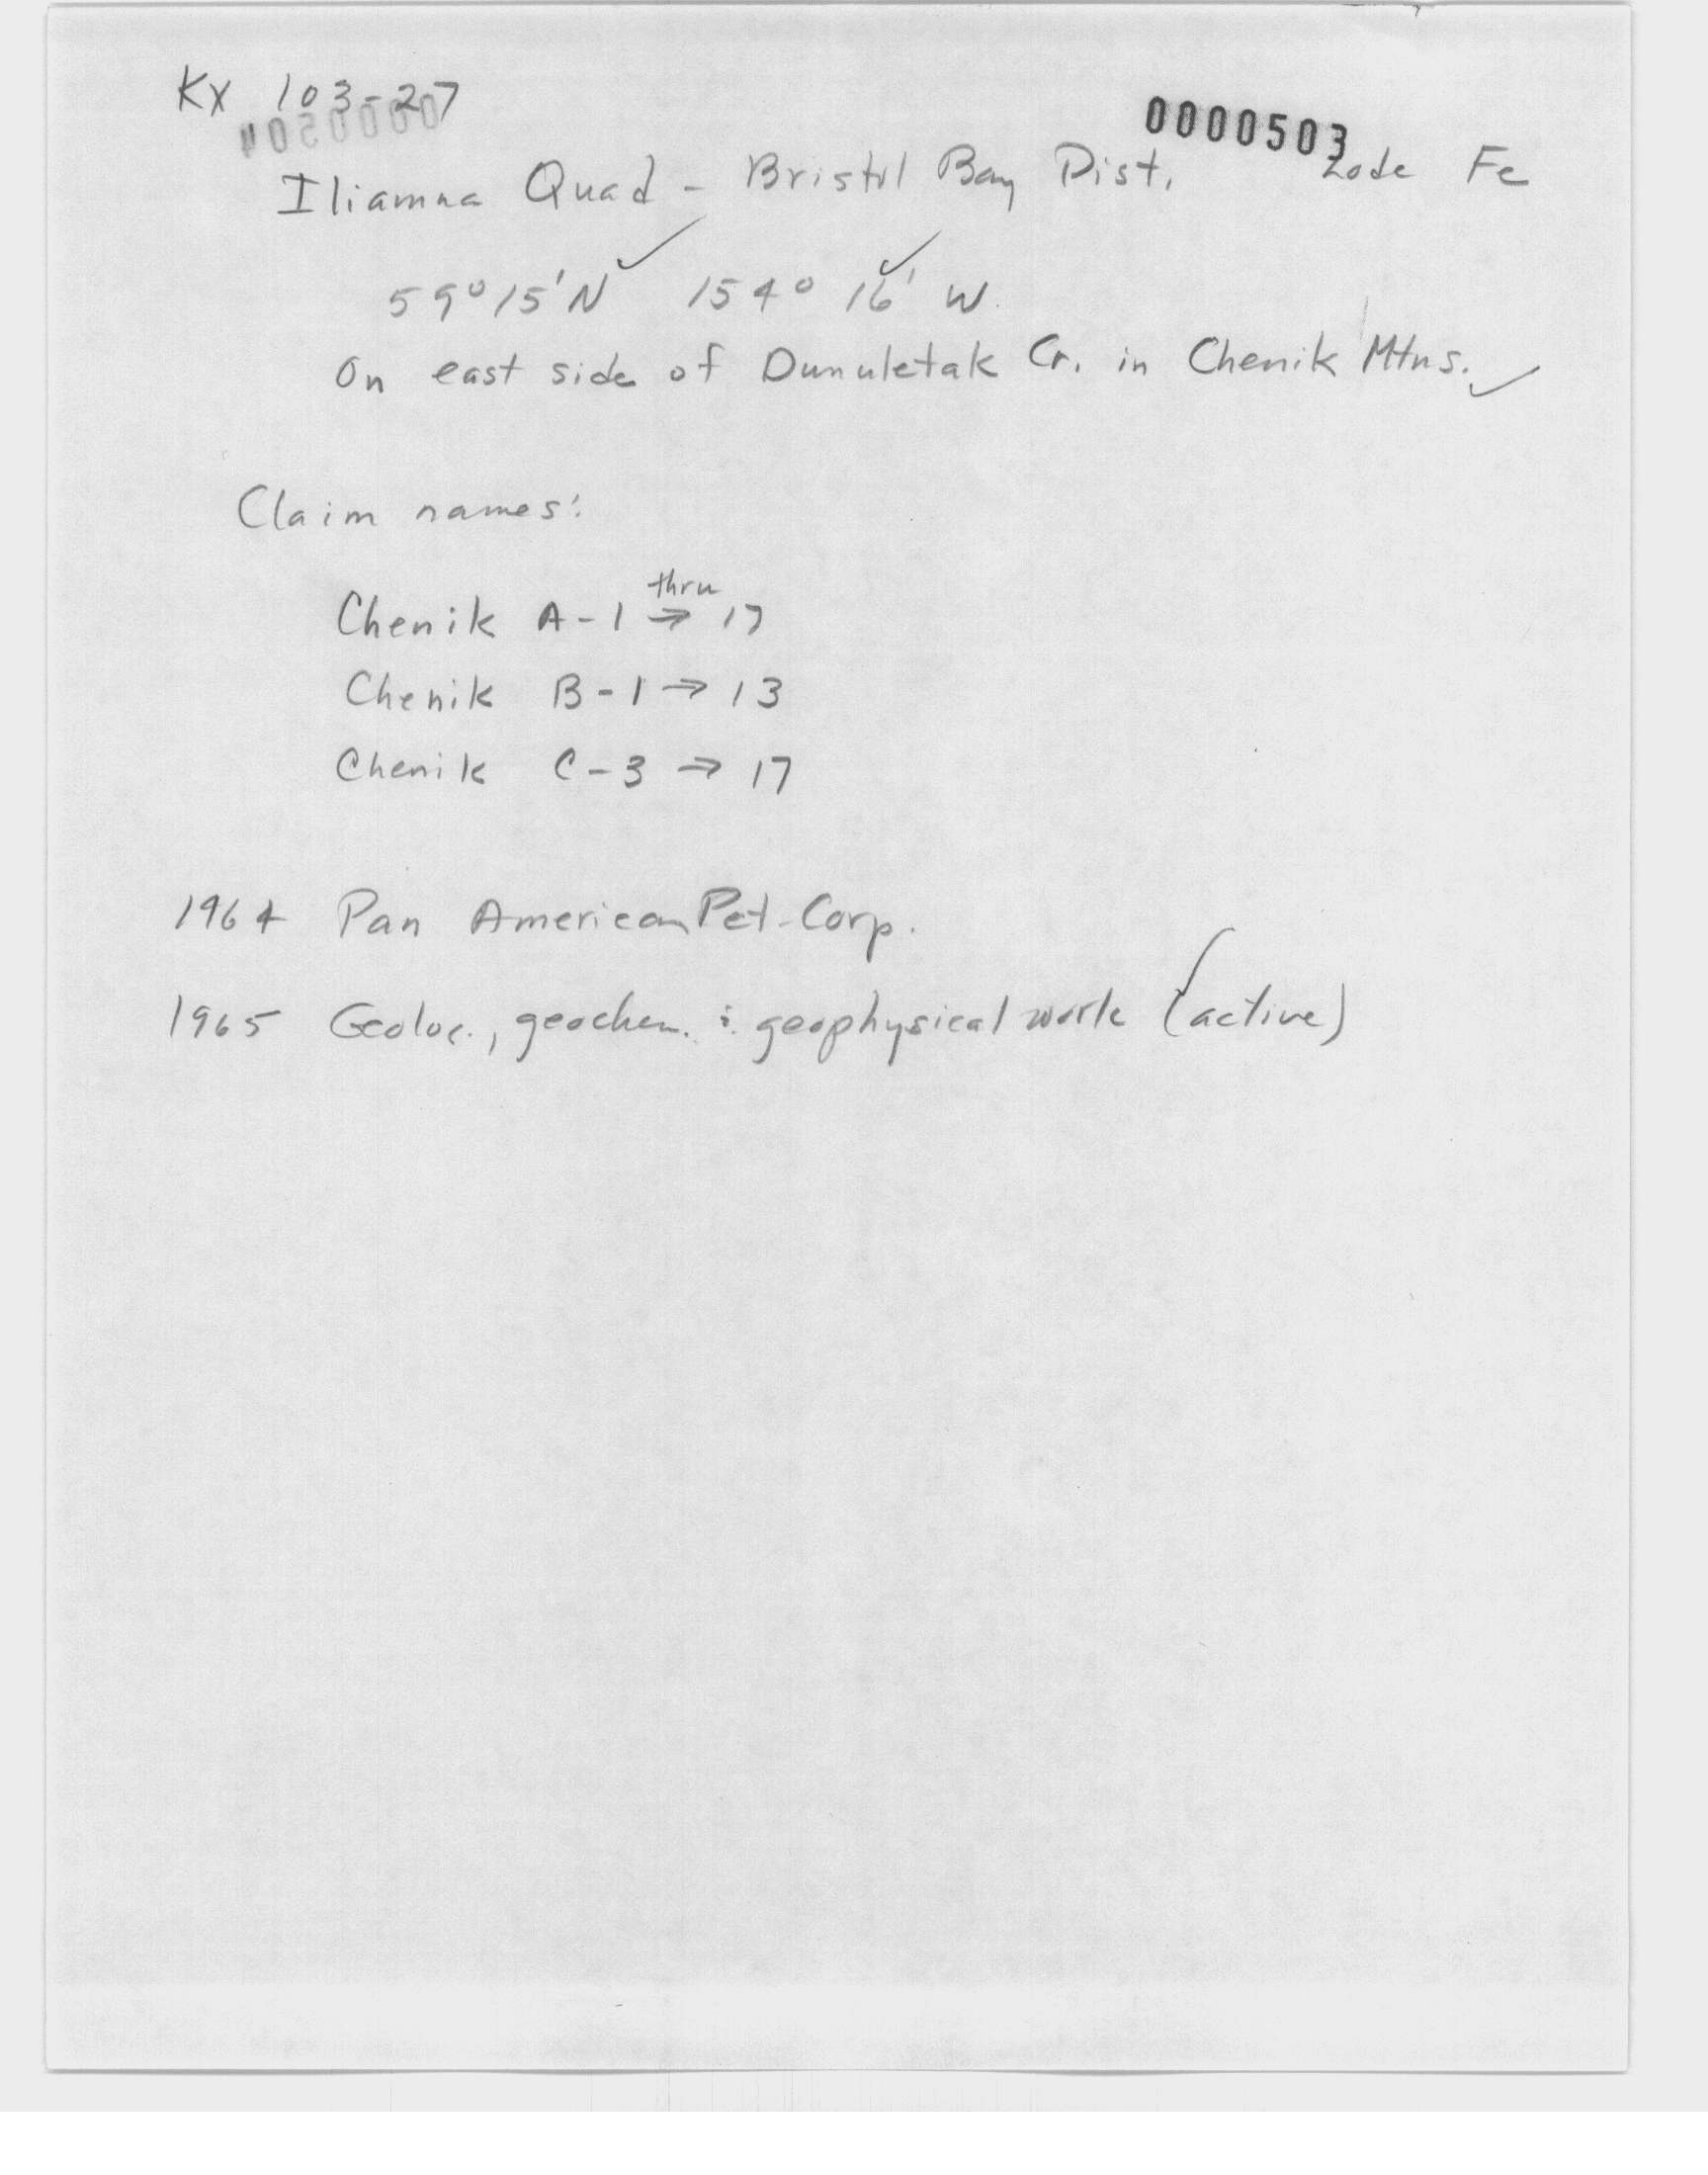 Kx 103-27
0000503
Iliamna Quad - Bristol Bay Dist. Lode Fe
59° 15' N 154° 16' W.
On east side of Dunuletak Cr. in Chenik Mtns.
Claim names:
thru
Chenik A-1 → 17
Chenik B-1 → 13
Chenik C-3 → 17
1964 Pan American Pet. Corp.
1965 Geoloc., geochem. & geophysical work (active)